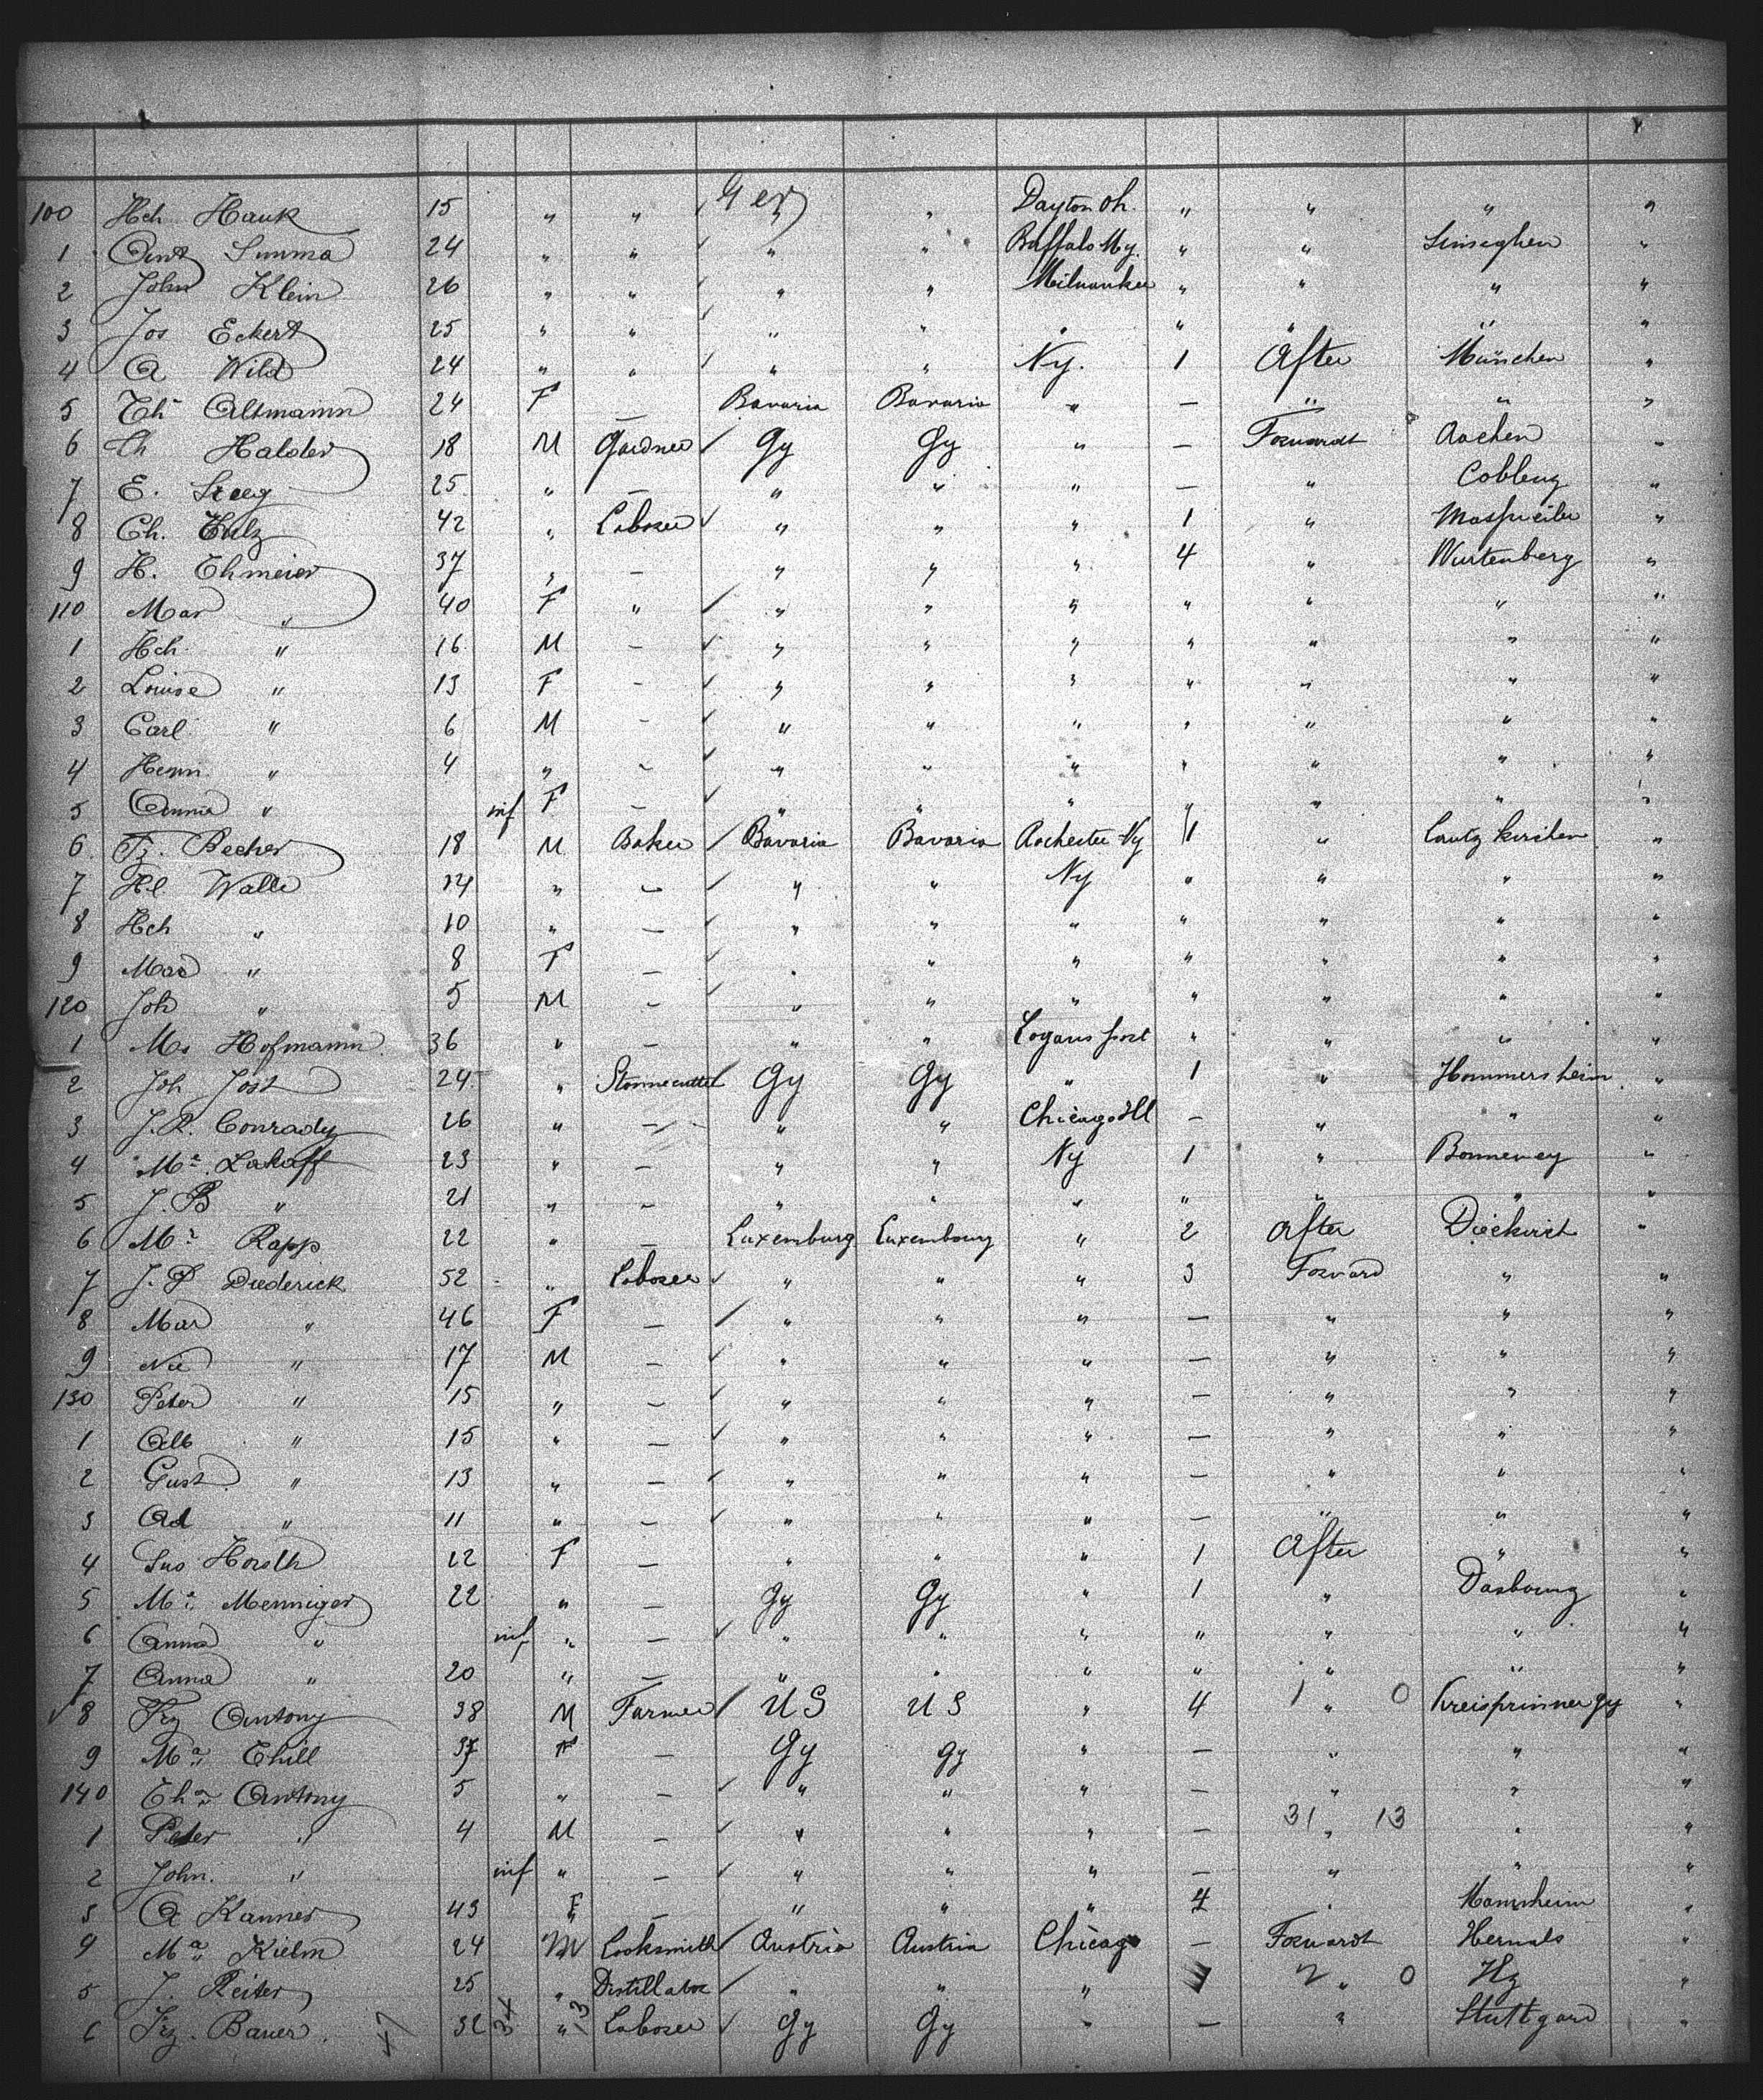 100 Hch Hauk 15 " " Ger " Dayton Oh. " " " "
1 Ant Summa 24 " " " " Buffalo Ny. " " "
2 John Klein 26 " " " " Milwaukee " " " "
3 Jos Eckert 25 " " " " " " " " "
4 A Wild 24 " " " " Ny. 1 After München "
5 Th Altmann 24 F — Bavaria Bavaria " — " " "
6 Ch Halder 18 M Gardner Gy Gy " — Forwardt Aachen "
7 E. 25 " — " " " — " Coblenz "
8 Ch. Hulz 42 " Laborer " " " 1 " "
9 H. Ehmeier 37 " — " " " 4 " Wurtenberg "
110 Mar " 40 F " " " " " " " "
1 Hch " 16 M — " " " " " " "
2 Louise " 13 F — " " " " " " "
3 Carl " 6 M — " " " " " " "
4 Henri " 4 " — " " " " " " "
5 Anna " inf F — " " " " " " "
6 Fz. Becher 18 M Baker Bavaria Bavaria Rochester Ny 1 " Lautzkirchen "
7 Hl Walle 14 " — " " Ny " " " "
8 Hch " 10 " — " " " " " " "
9 Mar " 8 F — " " " " " " "
120 Joh " 5 M — " " " " " " "
1 Mr Hofmann 36 " — " " Logans port " " " "
2 Joh Jost 24 " Stonnecutter Gy Gy " 1 " Hommersheim "
3 J. R. Conrady 26 " — " " Chicago Ill — " " "
4 Mr. Lakaff 23 " — " " Ny 1 " Bonnevey "
5 J. B " 21 " — " " " " " " "
6 Mr Rapp 22 " — Luxemburg Luxembourg " 2 After Dieckirch "
7 J. P Diederick 52 " Laborer " " " 3 Forvard " "
8 Mar " 46 F — " " " — " " "
9 Nic " 17 M — " " " — " " "
130 Peter " 15 " — " " " — " " "
1 Alb " 15 " — " " " — " " "
2 Gust " 13 " — " " " — " " "
3 Ad " 11 " — " " " — " " "
4 Sus Horsth 22 F — " " " 1 After " "
5 Ma Menniger 22 " — Gy Gy " 1 " Dasbourg "
6 Anna " inf " — " " " " " " "
7 Anna " 20 " — " " " " " " "
8 Frz Antony 38 M Farmer U S U S " 4 1 " 0 "
9 Ma Thill 37 F — Gy Gy " — " " "
140 Cha Antony 5 " — " " " — " " "
1 Peter " 4 M — " " " — 31 " 13 " "
2 John. " inf " — " " " — " " "
3 A Kanner 43 F — " " " 4 " Mannheim "
4 Ma Kielm 24 M Locksmith Austria Austria Chicago — Forwardt Hernals "
5 J. Reiter 25 " Distillator " " " 2 " 0 Hz "
6 Frz. Bauer. 47 32 34 " 13 Laborer Gy Gy " — " Stuttgard "